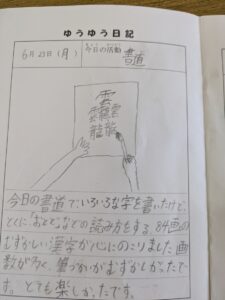 ゆうゆう日記
6月23日（月）今日の活動 書道
雲
雲雲
龍龍
今日の書道で、いろいろな字を書いたけど、
とくに「おとど」などの読み方をする、84画の
むずかしい漢字が心にのこりました。画
数が多く、筆づかいがむずかしかったで
す。とても楽しかったです。